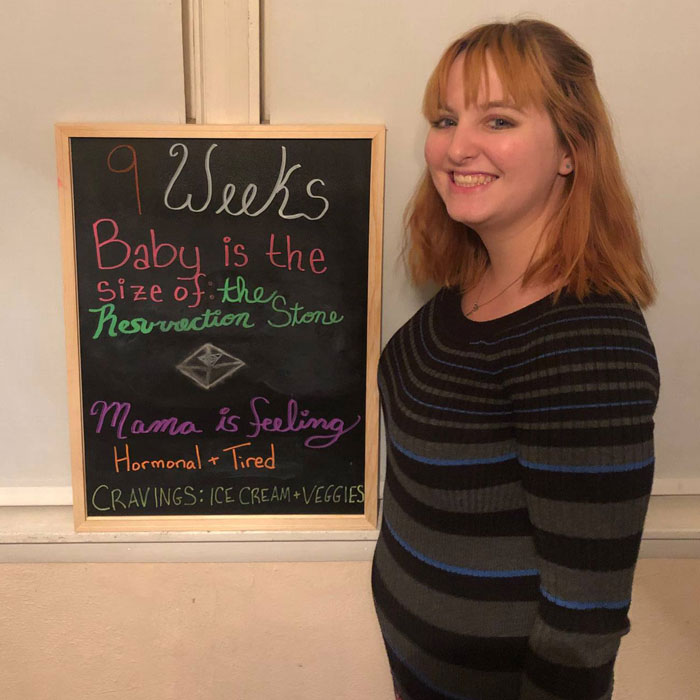 9 Weeks
Baby is the
size of: the
Resurrection Stone
Mama is feeling
Hormonal + Tired
CRAVINGS: ICE CREAM + VEGGIES